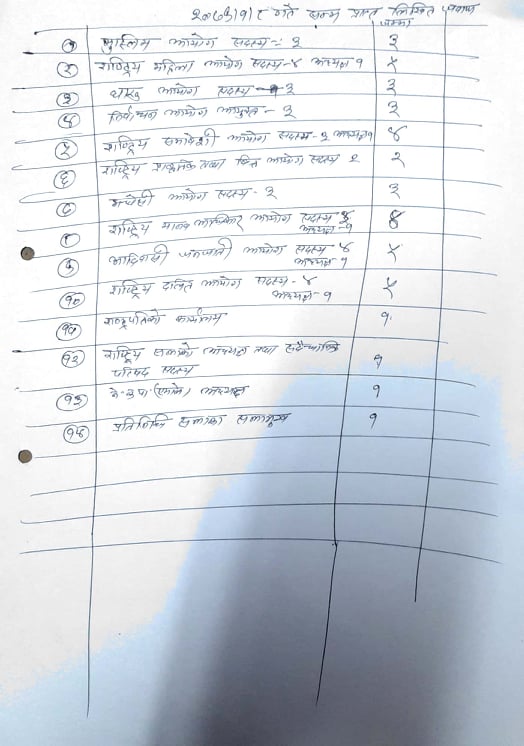 गते सम्म प्राप्त लिखित
जम्मा
१ मुस्लिम आयोग सदस्य - ३ ३
२ राष्ट्रिय महिला आयोग सदस्य-४ अध्यक्ष १ ५
३ थारु आयोग सदस्य ३ ३
४ निर्वाचन आयोग आयुक्त - ३ ३
५ राष्ट्रिय समावेशी आयोग सदस्य - ३ अध्यक्ष १ ४
६ राष्ट्रिय प्राकृतिक तथा वित्त आयोग सदस्य २ २
७ मधेसी आयोग सदस्य - ३ ३
८ राष्ट्रिय मानव अधिकार आयोग सदस्य
अध्यक्ष-१
९ आदिवासी जनजाती आयोग सदस्य ४ ५
अध्यक्ष १
१० राष्ट्रिय दलित आयोग सदस्य - ४ ५
अध्यक्ष-१
११ राष्ट्रपतिको कार्यालय १
१२ राष्ट्रिय सभाको अध्यक्ष तथा संवैधानिक
परिषद सदस्य १
१३ (एमाले) अध्यक्ष १
१४ प्रतिनिधि सभाका सभामुख १